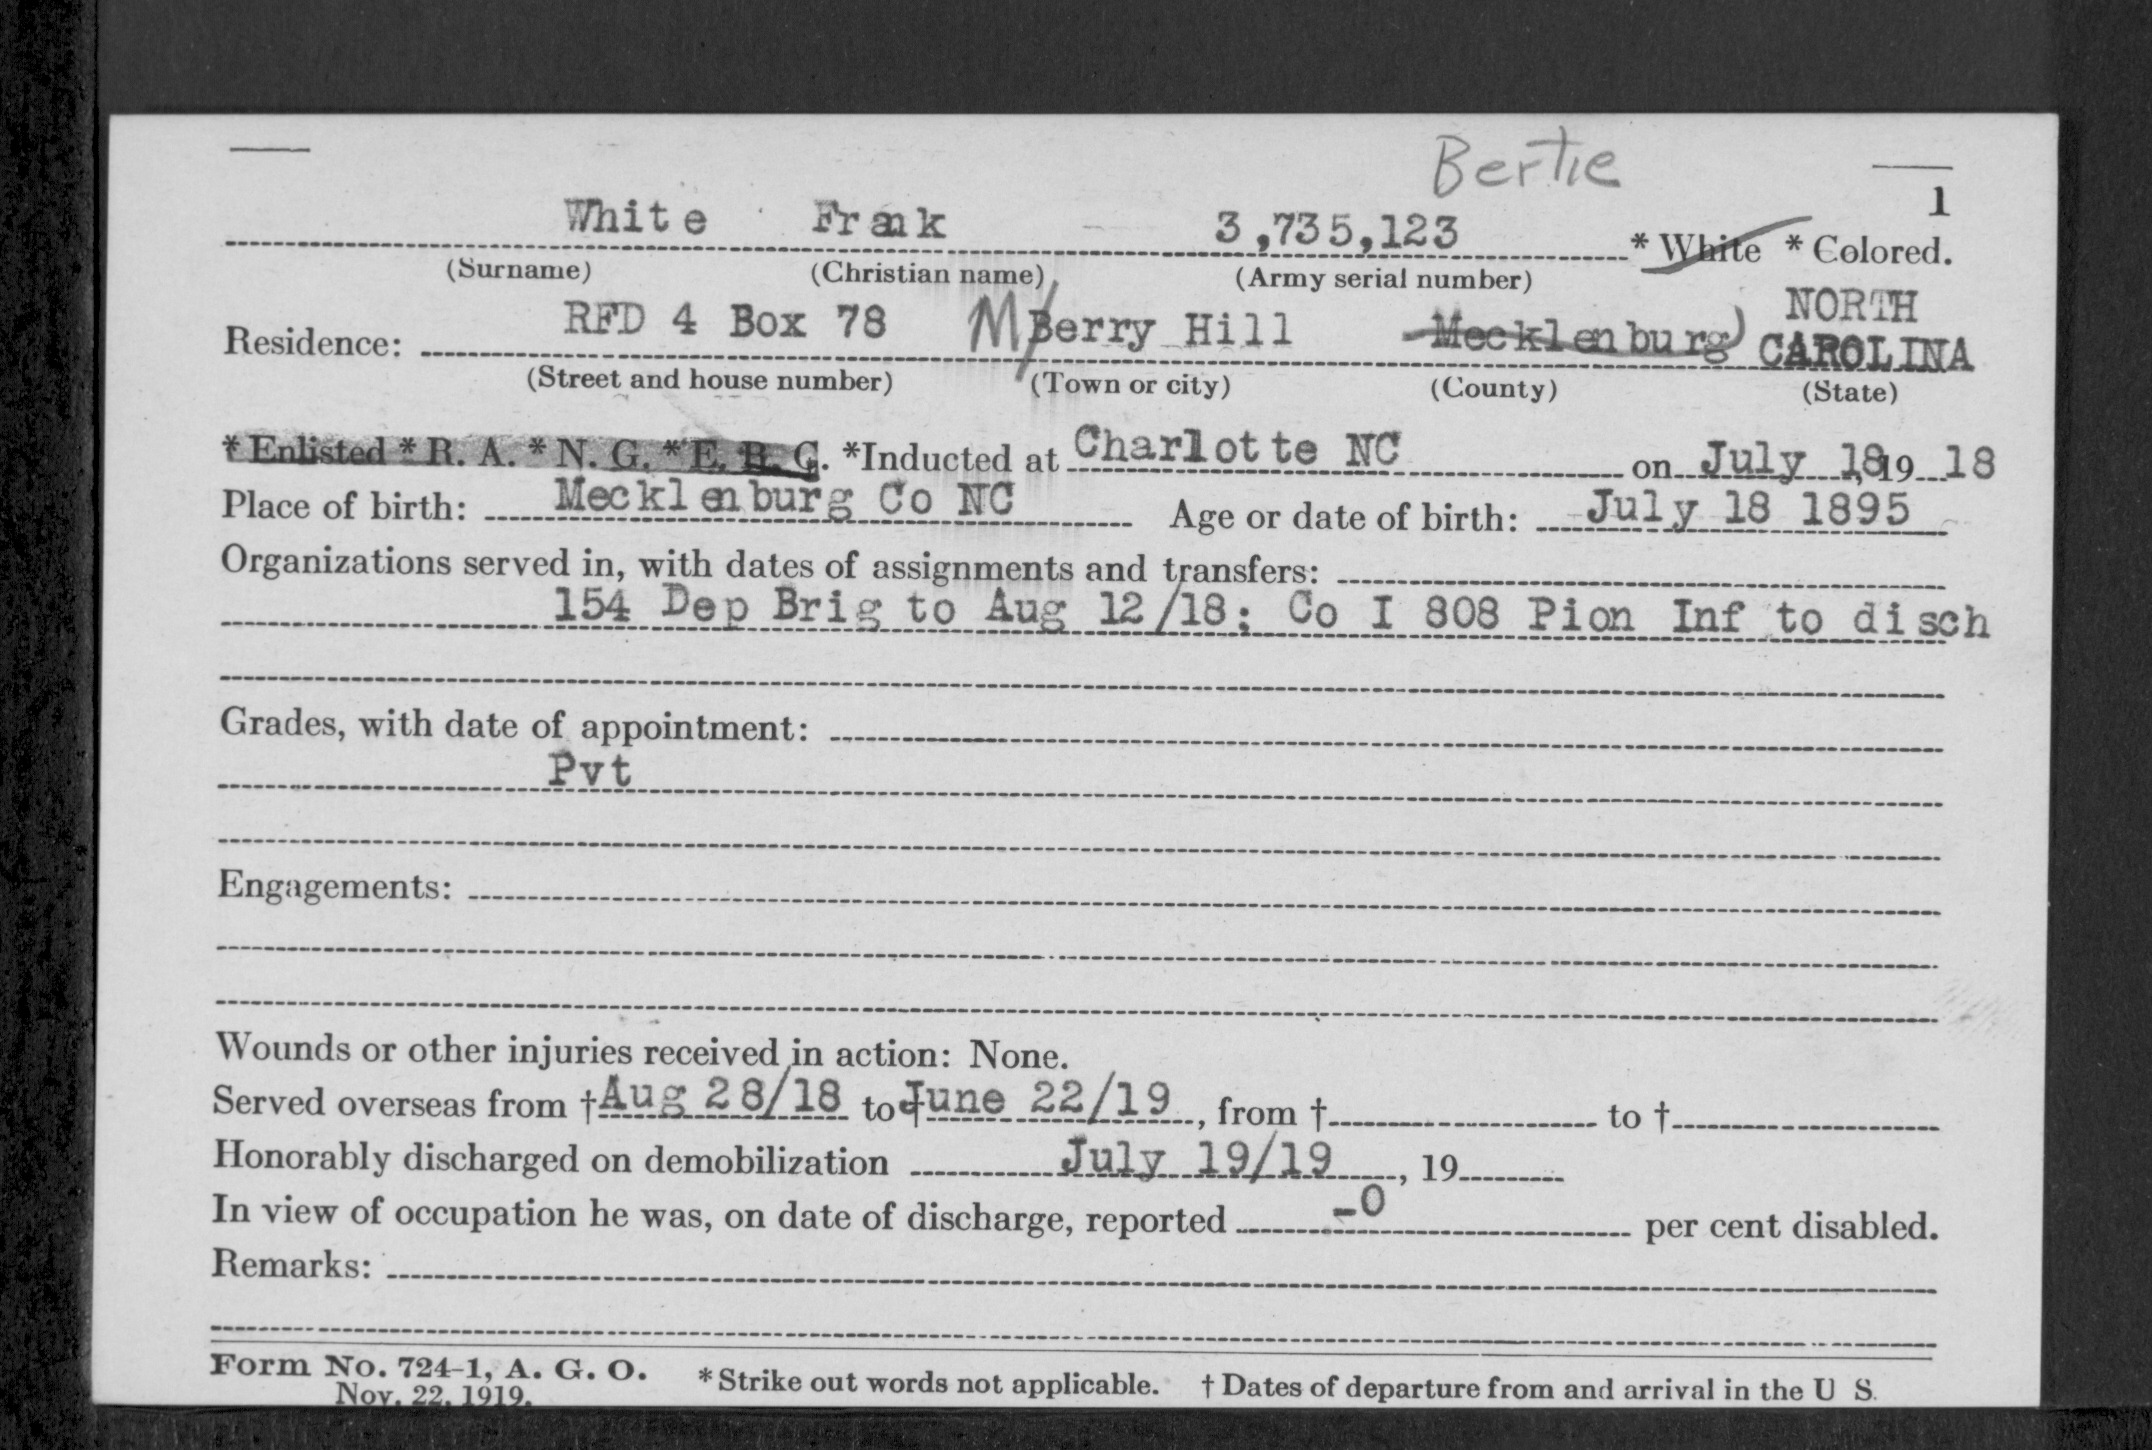 Bertie
1
White Frank 3,735,123 * White * Colored.
(Surname) (Christian name) (Army serial number)
Residence: RFD 4 Box 78 M/Berry Hill Mecklenburg NORTH CAROLINA
(Street and house number) (Town or city) (County) (State)
* Enlisted * R. A. * N. G. * E. R. C. *Inducted at Charlotte NC on July 18, 19 18
Place of birth: Mecklenburg Co NC Age or date of birth: July 18 1895
Organizations served in, with dates of assignments and transfers:
154 Dep Brig to Aug 12/18; Co I 808 Pion Inf to disch
Grades, with date of appointment:
Pvt
Engagements:
Wounds or other injuries received in action: None.
Served overseas from † Aug 28/18 to † June 22/19, from † to †
Honorably discharged on demobilization July 19/19, 19
In view of occupation he was, on date of discharge, reported -0 per cent disabled.
Remarks:
Form No. 724-1, A. G. O. * Strike out words not applicable. † Dates of departure from and arrival in the U S.
Nov. 22, 1919.